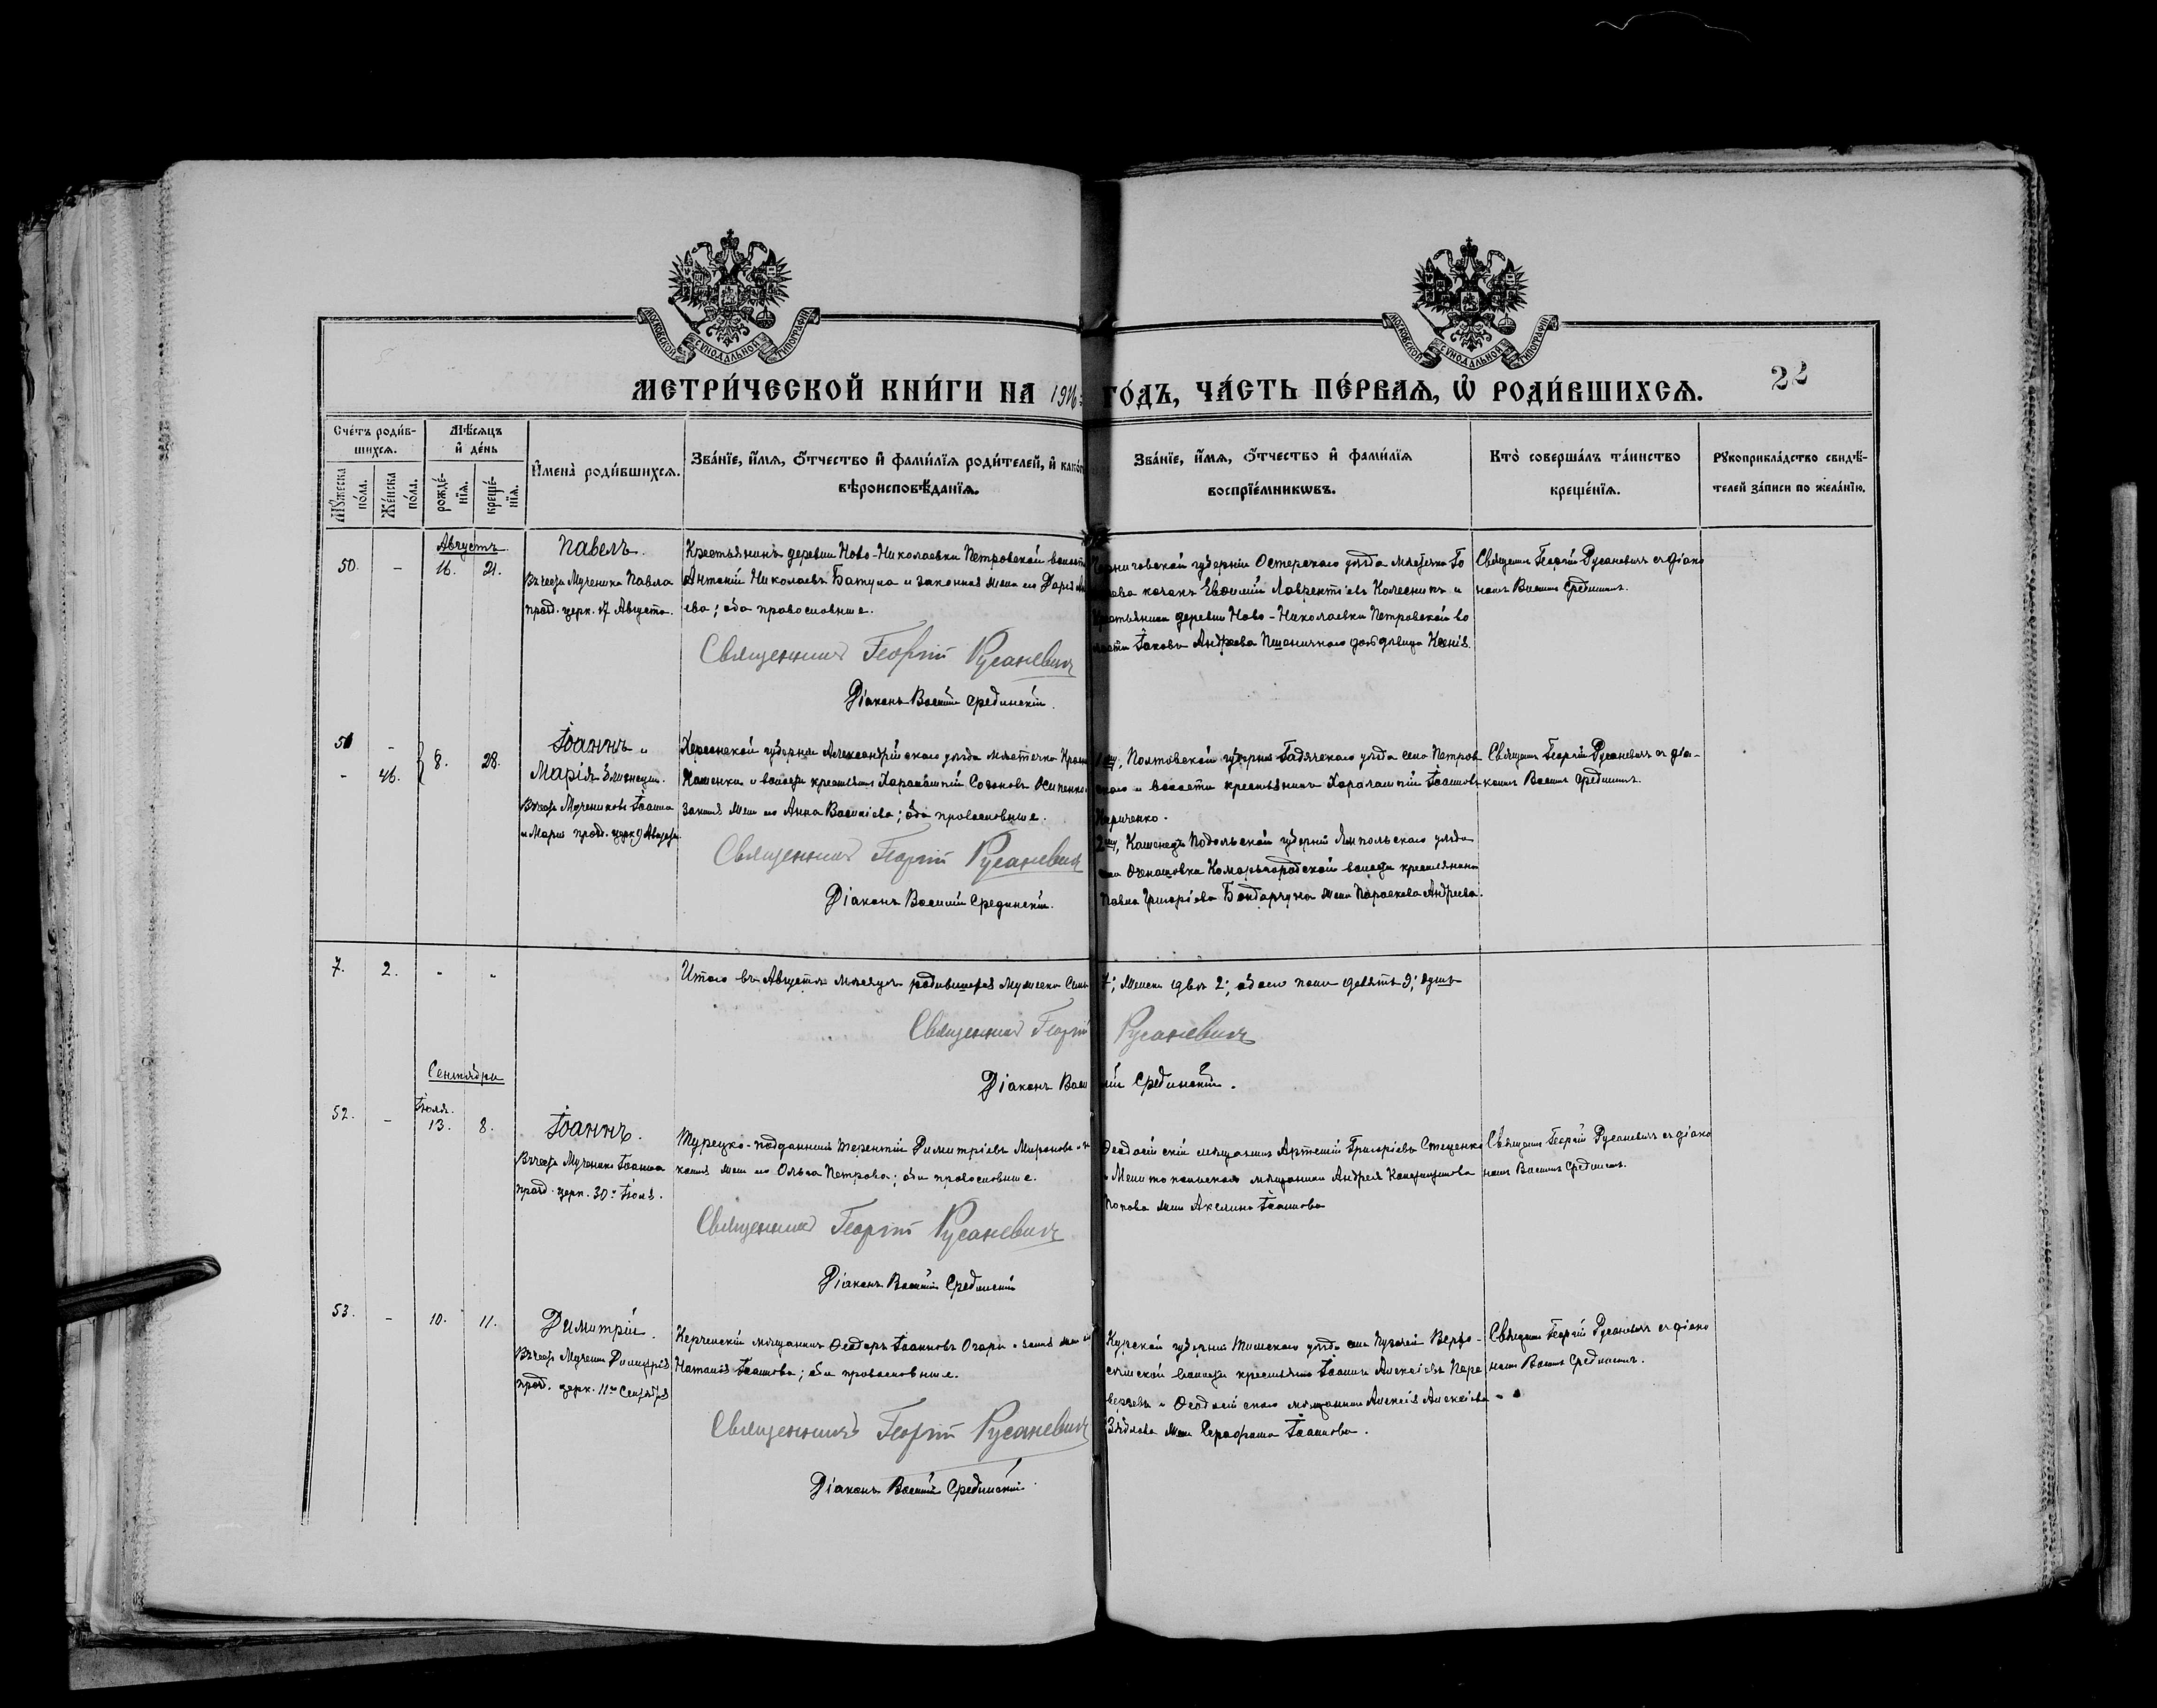 МОСКОВСКОЙ СѴНОДАЛЬНОЙ ТИПОГРАФІИ
МОСКОВСКОЙ СѴНОДАЛЬНОЙ ТИПОГРАФІИ
22
МЕТРИ́ЧЕСКОЙ КНИ́ГИ НА 1916 ГО́ДЪ, ЧА́СТЬ ПЕ́РВАѦ, Ѡ РОДИ́ВШИХСѦ.
Сче́тъ роди́в-
шихсѧ.
Мѣ́сѧцъ
и҆ де́нь
Мꙋ́жеска по́ла.
Же́нска по́ла.
рожде́-нїѧ.
креще́-нїѧ.
И҆мена̀ роди́вшихсѧ.
Зва́нїе, и҆́мѧ, ѻ҆́тчество и҆ фами́лїѧ роди́телей, и҆ како́гѡ
вѣроисповѣ́данїѧ.
Зва́нїе, и҆́мѧ, ѻ҆́тчество и҆ фами́лїѧ
воспрїе́мникѡвъ.
Кто̀ соверша́лъ та́инство
креще́нїѧ.
Рꙋкоприкла́дство свидѣ́-
телей за́писи по жела́нїю.
Августъ
50. - 16. 21.
Павелъ.
Въ честь Мученика Павла
празд. церк. 17 Августа.
Крестьянинъ деревни Ново-Николаевки Петровской волости
Антоній Николаевъ Батула и законная жена его Дарія
ева; оба православные.
Священникъ Георгій Русаневичъ
Діаконъ Василій Срединскій.
Черниговской губерніи Остерскаго уѣзда мѣстечка Го
козакъ Евѳимій Лаврентіевъ Колесникъ и
крестьянина деревни Ново-Николаевки Петровской во
лости Іакова Андреева Пшеничнаго дочь дѣвица Ксенія.
Священникъ Георгій Русаневичъ съ діако
номъ Василіемъ Срединскимъ.
51 - 8. 28.
- 46.
Іоаннъ и
Марія близнецы.
Въ честь Мучениковъ Іоанна
и Маріи празд. церк. 9 Августа.
Херсонской губерніи Александрійскаго уѣзда мѣстечка
Каменки и волости крестьянинъ Харалампій Созоновъ Осипенко
законная жена его Анна Василіева; оба православные.
Священникъ Георгій Русаневичъ
Діаконъ Василій Срединскій.
1му, Полтавской губерніи Гадячскаго уѣзда села Петров
скаго и волости крестьянинъ Харалампій Іоанновъ
Кириченко.
2му, Каменецъ Подольской губерніи Ямпольскаго уѣзда
Комаргородской волости крестьянина
Павла Григоріева Бондарчука жена Параскева Андреева.
Священникъ Георгій Русаневичъ съ діа-
кономъ Василіемъ Срединскимъ.
7. 2. " "
Итого въ Августѣ мѣсяцѣ родившихся мужеска семь 7; женска двѣ 2; обоего пола девять 9; душъ
Священникъ Георгій Русаневичъ
Діаконъ Василій Срединскій.
Сентябрь
Іюля.
52. - 13. 8.
Іоаннъ.
Въ честь Мученика Іоанна
празд. церк. 30го Іюля.
Турецко-подданный Терентій Димитріевъ Мироновъ и за
конная жена его Ольга Петрова; оба православные.
Священникъ Георгій Русаневичъ
Діаконъ Василій Срединскій
Ѳеодосійскій мѣщанинъ Артемій Григоріевъ Стеценко
и Мелитопольскаго мѣщанина Андрея
Попова жена Акилина Іоаннова
Священникъ Георгій Русаневичъ съ діако
номъ Василіемъ Срединскимъ.
53. - 10. 11.
Димитрій.
Въ честь Мученика Димитрія
празд. церк. 11го Сентября
Керченскій мѣщанинъ Ѳеодоръ Іоанновъ и законная жена его
Наталія Іоаннова; оба православные.
Священникъ Георгій Русаневичъ
Діаконъ Василій Срединскій.
Курской губерніи Тимскаго уѣзда села
волости крестьянинъ Іоаннъ Алексіевъ Пере
верзевъ и Ѳеодосійскаго мѣщанина Алексія Алексіева
жена Серафима Іоаннова.
Священникъ Георгій Русаневичъ съ діако
номъ Василіемъ Срединскимъ.